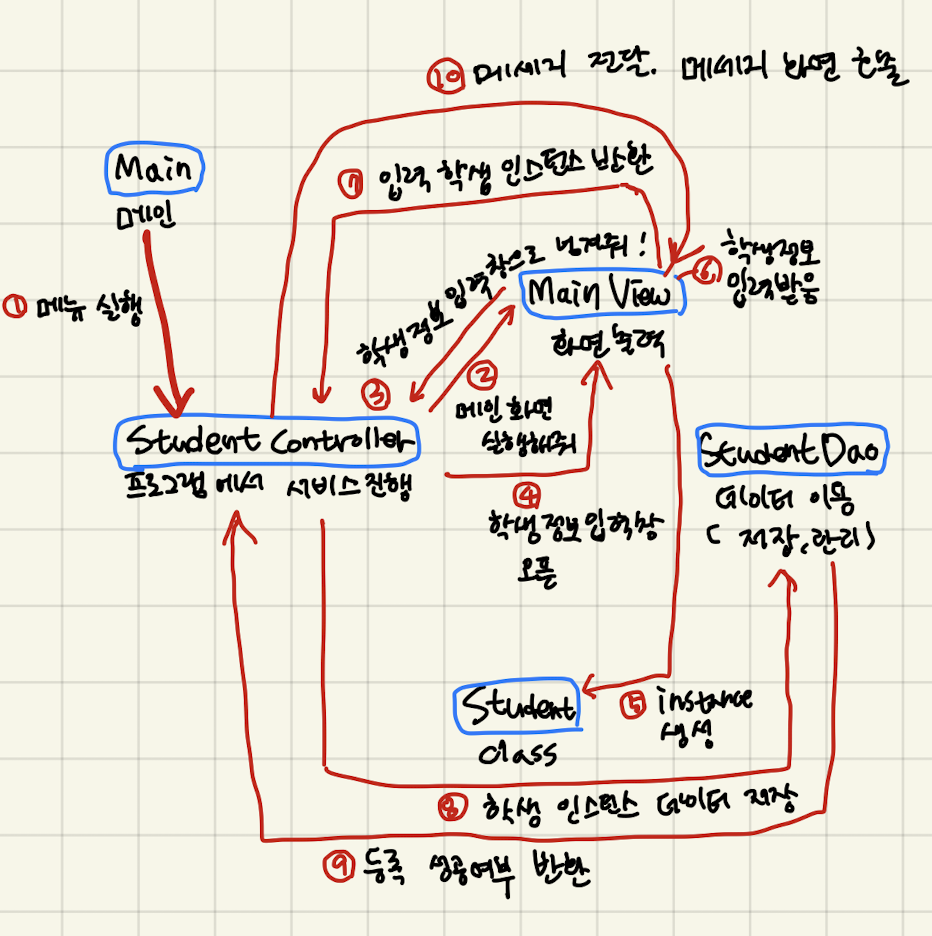 ⑩ 메세지 전달. 메세지 화면 출력
Main
메인
⑦ 입력 학생 인스턴스 반환
① 메뉴 실행
학생정보 입력창으로 넘겨줘!
③
Main View
화면 출력
⑥ 학생정보
입력받음
②
메인 화면
실행해줘
Student Controller
프로그램에서 서비스 진행
④
학생정보 입력창
오픈
StudentDao
데이터 이동
( 저장, 관리 )
Student
class
⑤ instance
생성
⑧ 학생 인스턴스 데이터 저장
⑨ 등록 성공여부 반환